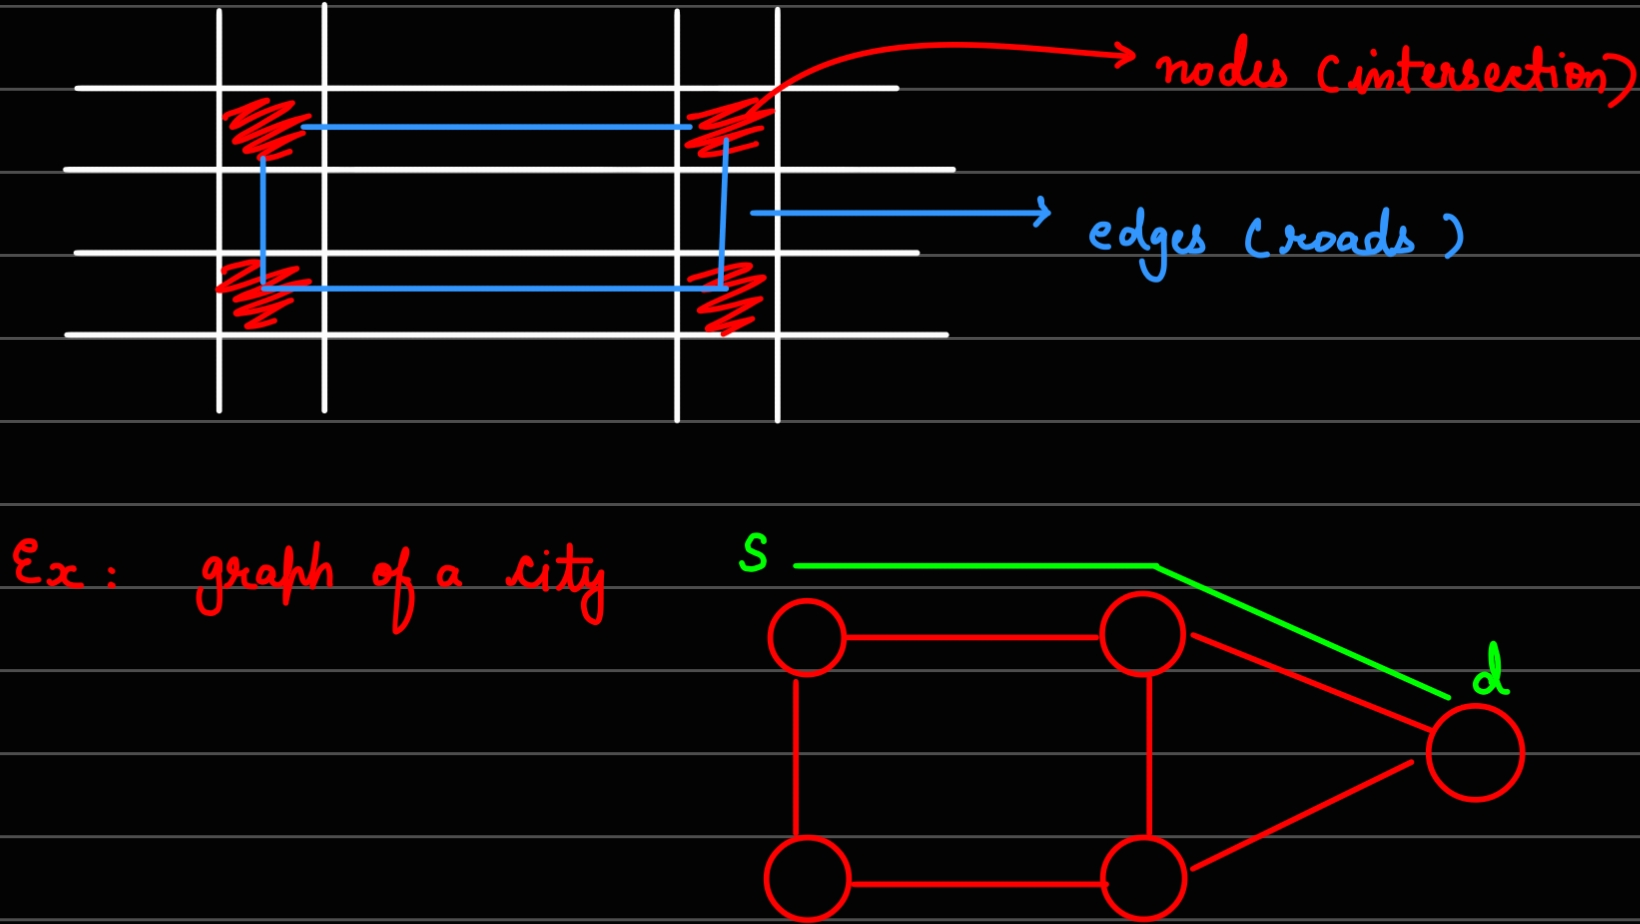 nodes (intersection)
edges (roads)
Ex: graph of a city
S
d